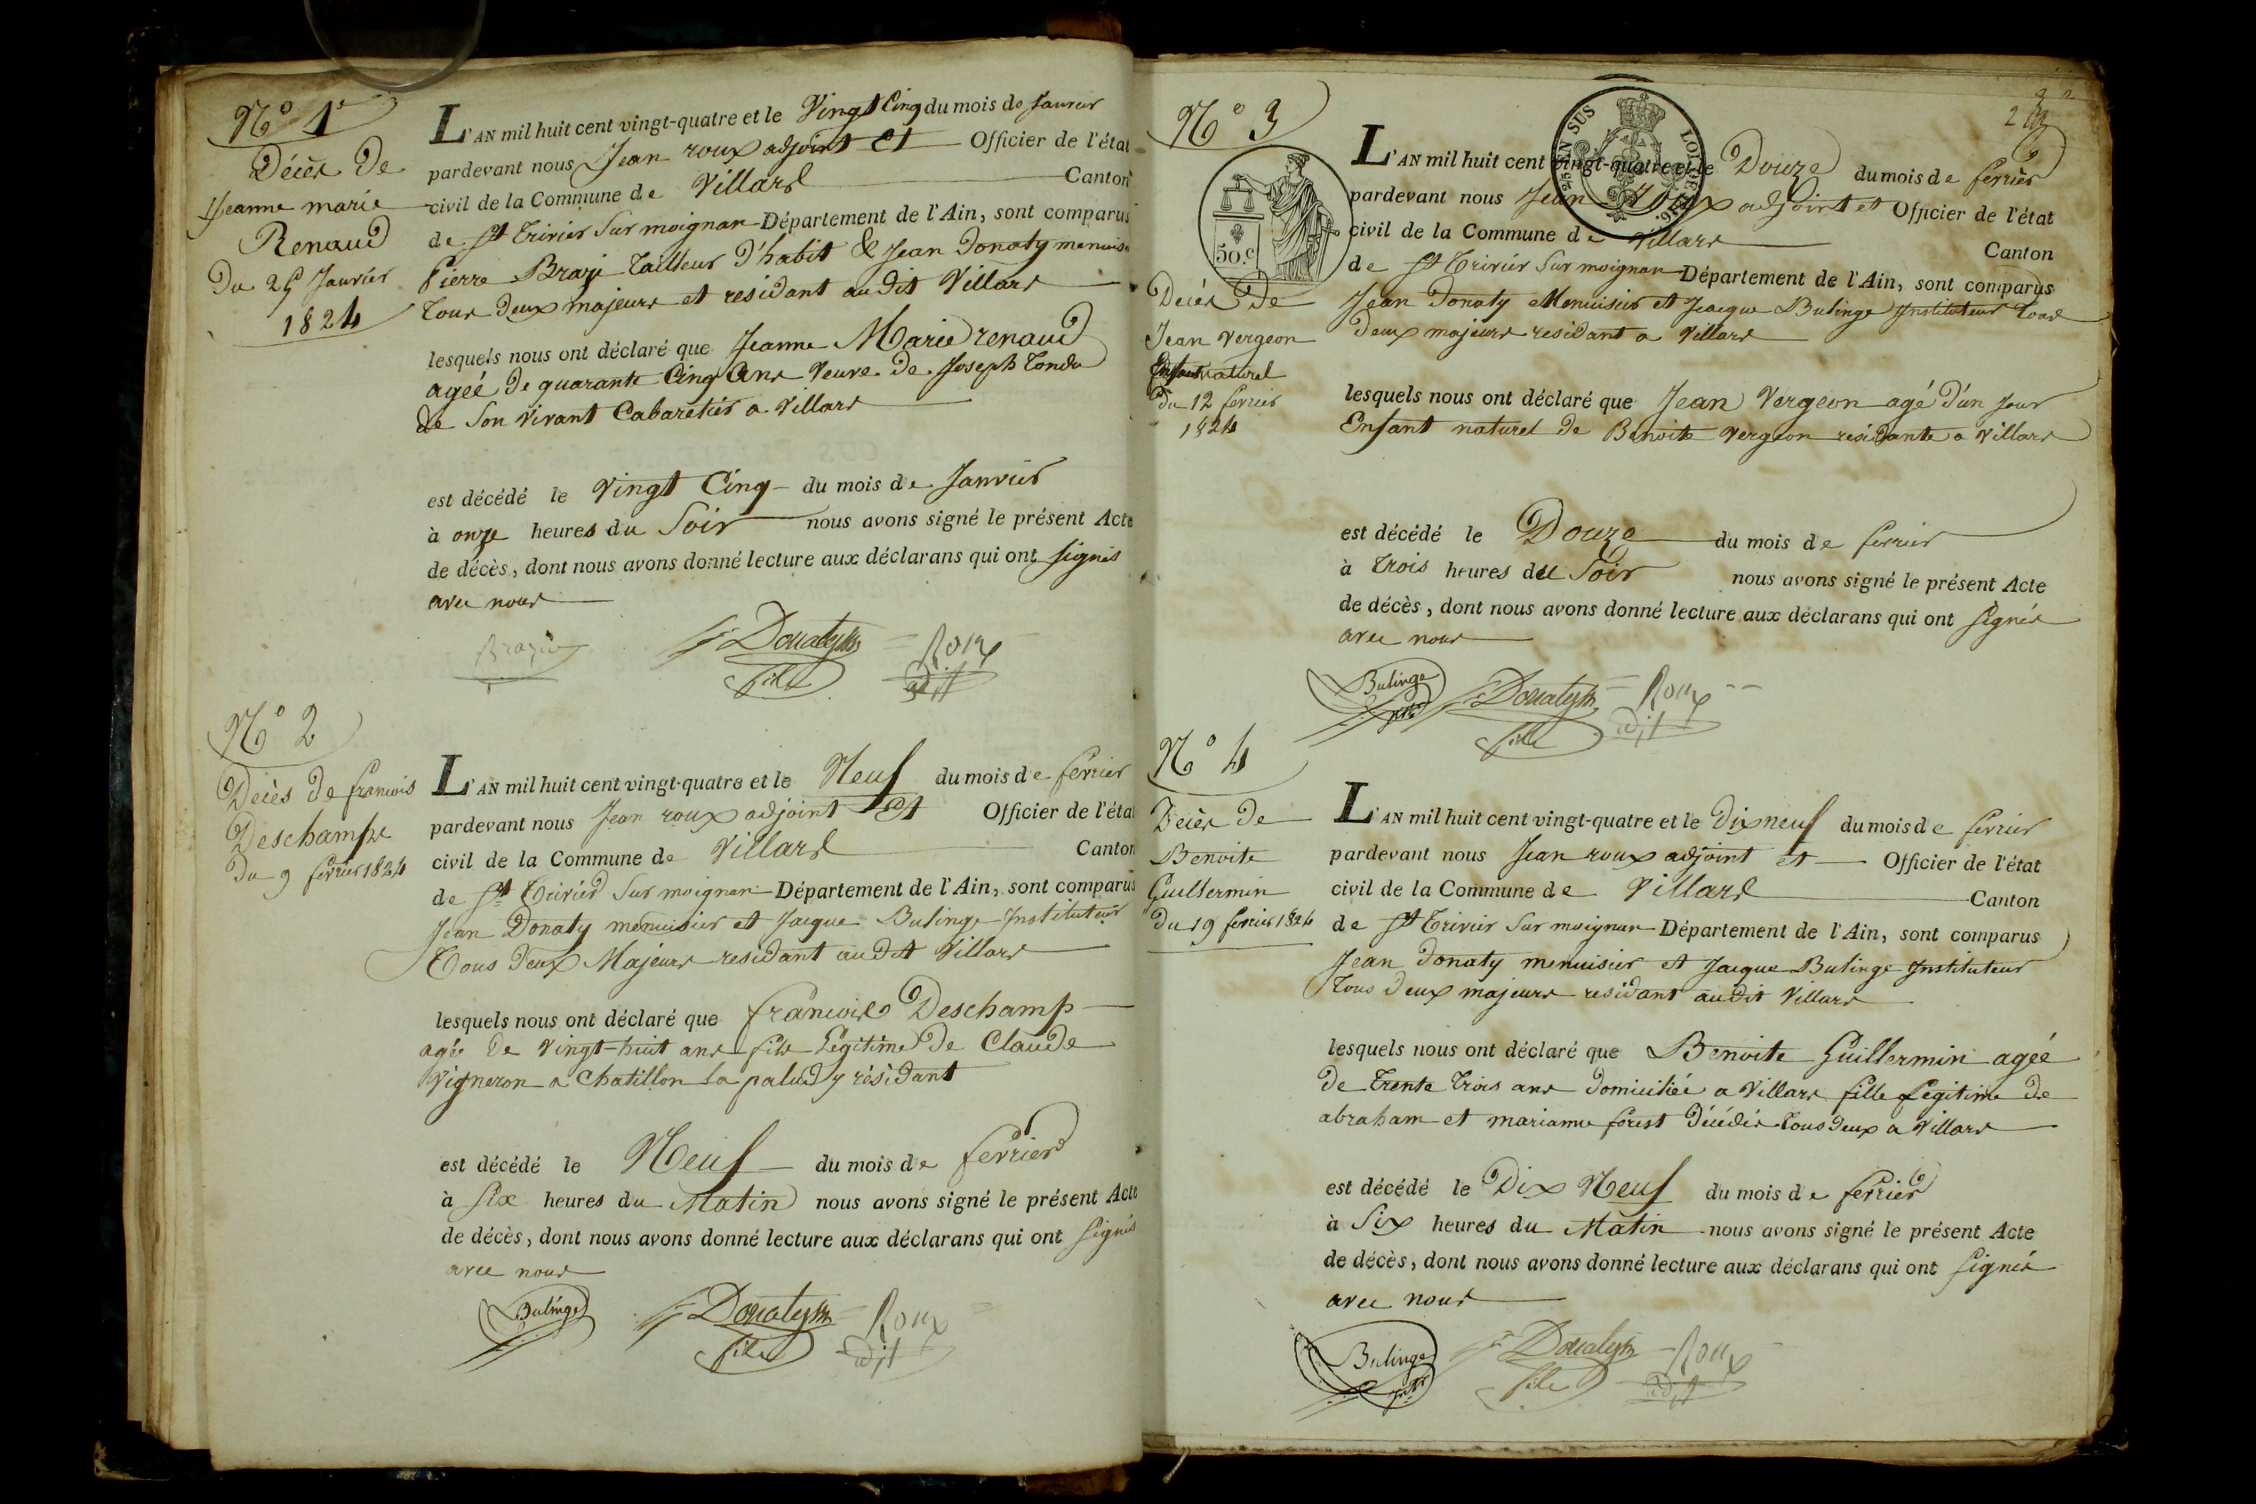 N° 1er
Décès de
Jeanne marie
Renaud
Du 25 Janvier
1824
L'AN mil huit cent vingt-quatre et le Vingt Cinq du mois de Janvier
pardevant nous Jean roux adjoint et Officier de l'état
civil de la Commune de Villars Canton
de St Trivier Sur moignan Département de l'Ain, sont comparus
Pierre Tailleur D'habit & Jean Donaty menuisi
Tous Deux majeurs et residant au dit Villars
lesquels nous ont déclaré que Jeanne Marie renaud
ageé De quarante Cinq Ans Veuve de Joseph Tondu
de Son vivant Cabaretier a Villars
est décédé le Vingt Cinq du mois de Janvier
à onze heures du Soir nous avons signé le présent Acte
de décès, dont nous avons donné lecture aux déclarans qui ont signés
avec nous
Donaty
fils
Roux
adjt
N° 2
Décès De francois
Deschamps
Du 9 fevrier 1824
L'AN mil huit cent vingt-quatre et le Neuf du mois de fevrier
pardevant nous Jean roux adjoint et Officier de l'état
civil de la Commune de Villars Canton
de St Trivier Sur moignan Département de l'Ain, sont comparus
Jean Donaty menuisier et Jacque Bulinge Instituteur
Tous Deux Majeurs residant au dit Villars
lesquels nous ont déclaré que francois Deschamp
agée De Vingt-huit ans fils Légitime De Claude
Vigneron a Chatillon la palud y résidant
est décédé le Neuf du mois de fevrier
à Six heures du Matin nous avons signé le présent Acte
de décès, dont nous avons donné lecture aux déclarans qui ont signés
avec nous
Bulinge
Donaty
fils
Roux
adjt
N° 3
50.c
Décès De
Jean Vergeon
Enfant naturel
Du 12 fevrier
1824
L'AN mil huit cent vingt-quatre et le Douze du mois de fevrier
pardevant nous Jean roux adjoint et Officier de l'état
civil de la Commune de Villars
Canton
de St Trivier Sur moignan Département de l'Ain, sont comparus
Jean Donaty Menuisier et Jacque Bulinge Instituteur Tous
Deux majeurs residant a Villars
lesquels nous ont déclaré que Jean Vergeon agé D'un Jour
Enfant naturel De Benoite Vergeon residante a Villars
est décédé le Douze du mois de fevrier
à Trois heures du Soir nous avons signé le présent Acte
de décès, dont nous avons donné lecture aux déclarans qui ont signés
avec nous
Bulinge
Donaty
fils
Roux
adjt
N° 4
Décès De
Benoite
Guillermin
Du 19 fevrier 1824
L'AN mil huit cent vingt-quatre et le Dix neuf du mois de fevrier
pardevant nous Jean roux adjoint et Officier de l'état
civil de la Commune de Villars Canton
de St Trivier Sur moignan Département de l'Ain, sont comparus
Jean Donaty menuisier et Jacque Bulinge Instituteur
Tous Deux majeurs residant au dit Villars
lesquels nous ont déclaré que Benoite Guillermin ageé
De Trente Trois ans Domiciliée a Villars fille Légitime De
abraham et marianne forest Décédés Tous Deux a Villars
est décédé le Dix Neuf du mois de fevrier
à Six heures du Matin nous avons signé le présent Acte
de décès, dont nous avons donné lecture aux déclarans qui ont signés
avec nous
Bulinge
Donaty
fils
Roux
adjt